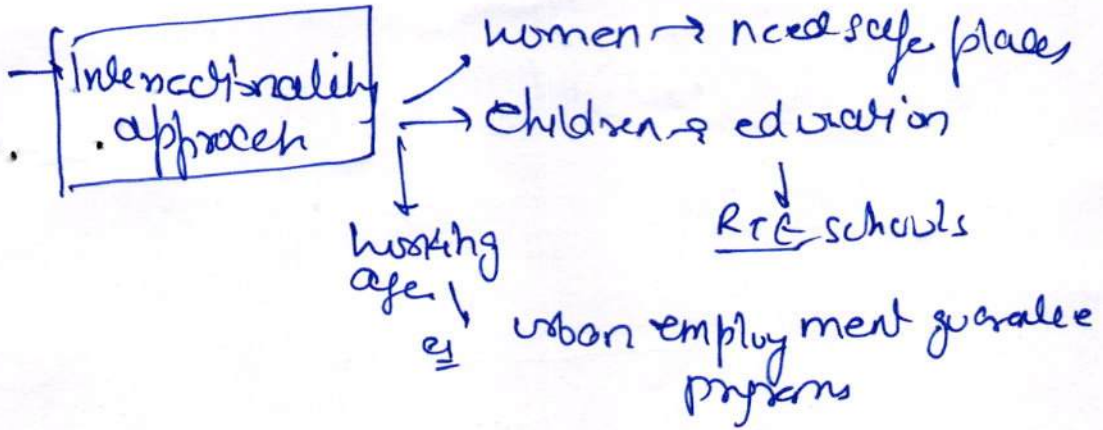 Intersectionality
approach
women → need safe places
children → education
RTE schools
working
age
eg urban employment guarantee
programs